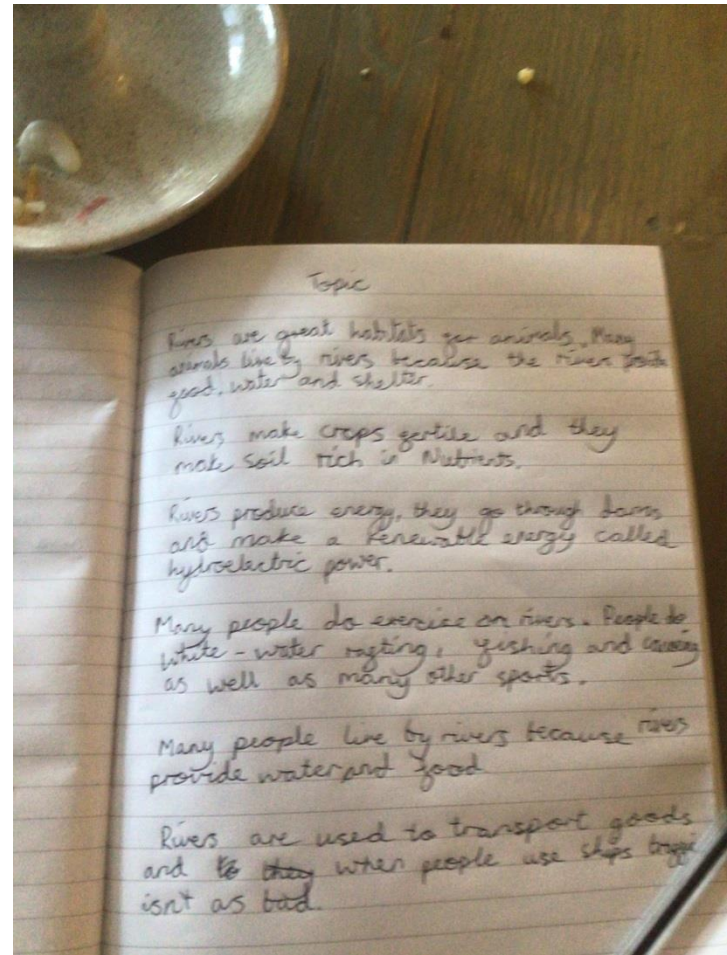 Topic
Rivers are great habitats for animals. Many
animals live by rivers because the rivers provide
food, water and shelter.
Rivers make crops fertile and they
make soil rich in Nutrients.
Rivers produce energy, they go through dams
and make a Renewable energy called
hydroelectric power.
Many people do exercise on rivers. People do
white-water rafting, fishing and canoeing
as well as many other sports.
Many people live by rivers because rivers
provide water and food
Rivers are used to transport goods
and when people use ships
isn't as bad.